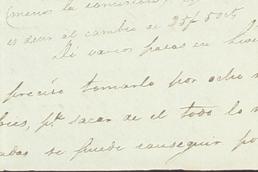 (menos la comision
es decir al cambio de 25 f 50 cts
Di varios pasos en
preciso tomarlo por ocho
bies, pa. sacar de el todo lo
adas se puede conseguir po